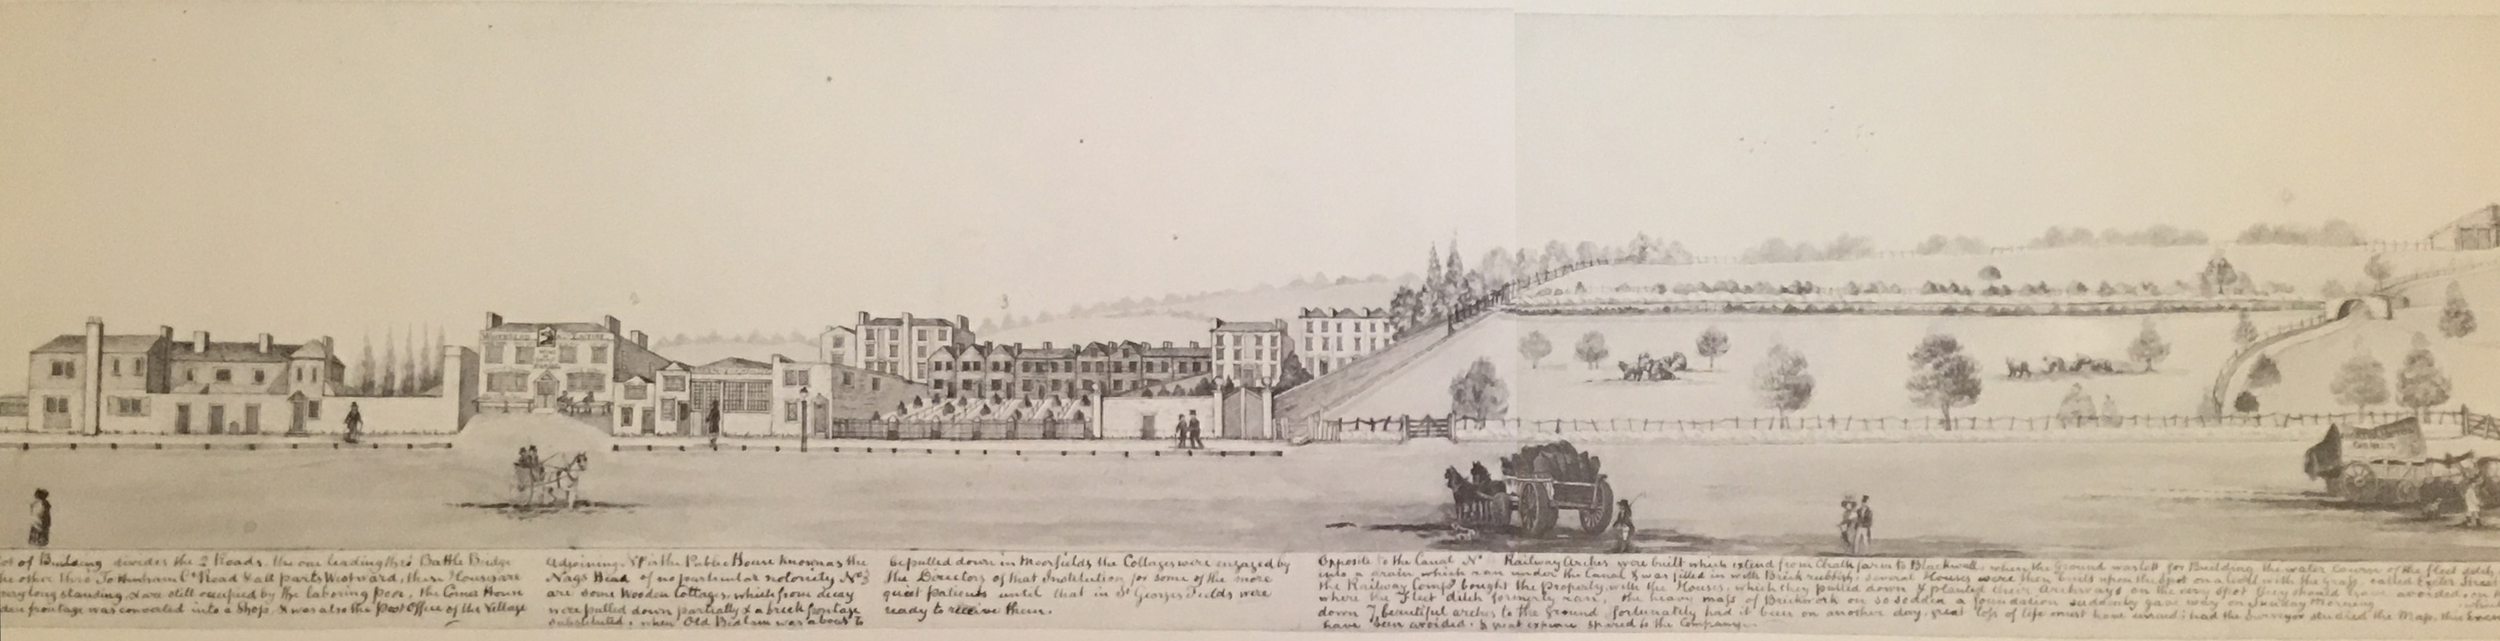 of Building divides the 2 Roads, the one leading thro' Battle Bridge
the other thro' Tottenham Ct Road & all parts Westward, these Houses are
very long standing, & are still occupied by the laboring poor, the Corner House
frontage was converted into a Shop, & was also the Post Office of the Village
Adjoining. No is the Public House known as the
Nags Head of no particular notoriety No 3
are some Wooden Cottages, which from decay
were pulled down partially & a brick frontage
substituted, when Old Bedlam was about to
be pulled down in Moorfields the Cottages were engaged by
the Directors of that Institution, for some of the more
quiet patients until that in St Georges Fields were
ready to receive them.
Opposite to the Canal No Railway Arches were built which extend from Chalk farm to Blackwall, when the Ground was left for Building, the water course of the fleet
into a drain which ran under the Canal & was filled in with Brick rubbish, several Houses were then built upon the spot on a level with the grass, called Exeter Street
the Railway Compy bought the Property with the Houses, which they pulled down & planted their Archways on the very spot they should have avoided, on
where the Fleet ditch formerly ran, the heavy mass of Brickwork on so sodden a foundation suddenly gave way on Sunday Morning
down 7 beautiful arches to the Ground, fortunately had it been on another day, great loss of life must have ensued; had the Surveyor studied the Map, this
have been avoided, & great expence spared to the Company.